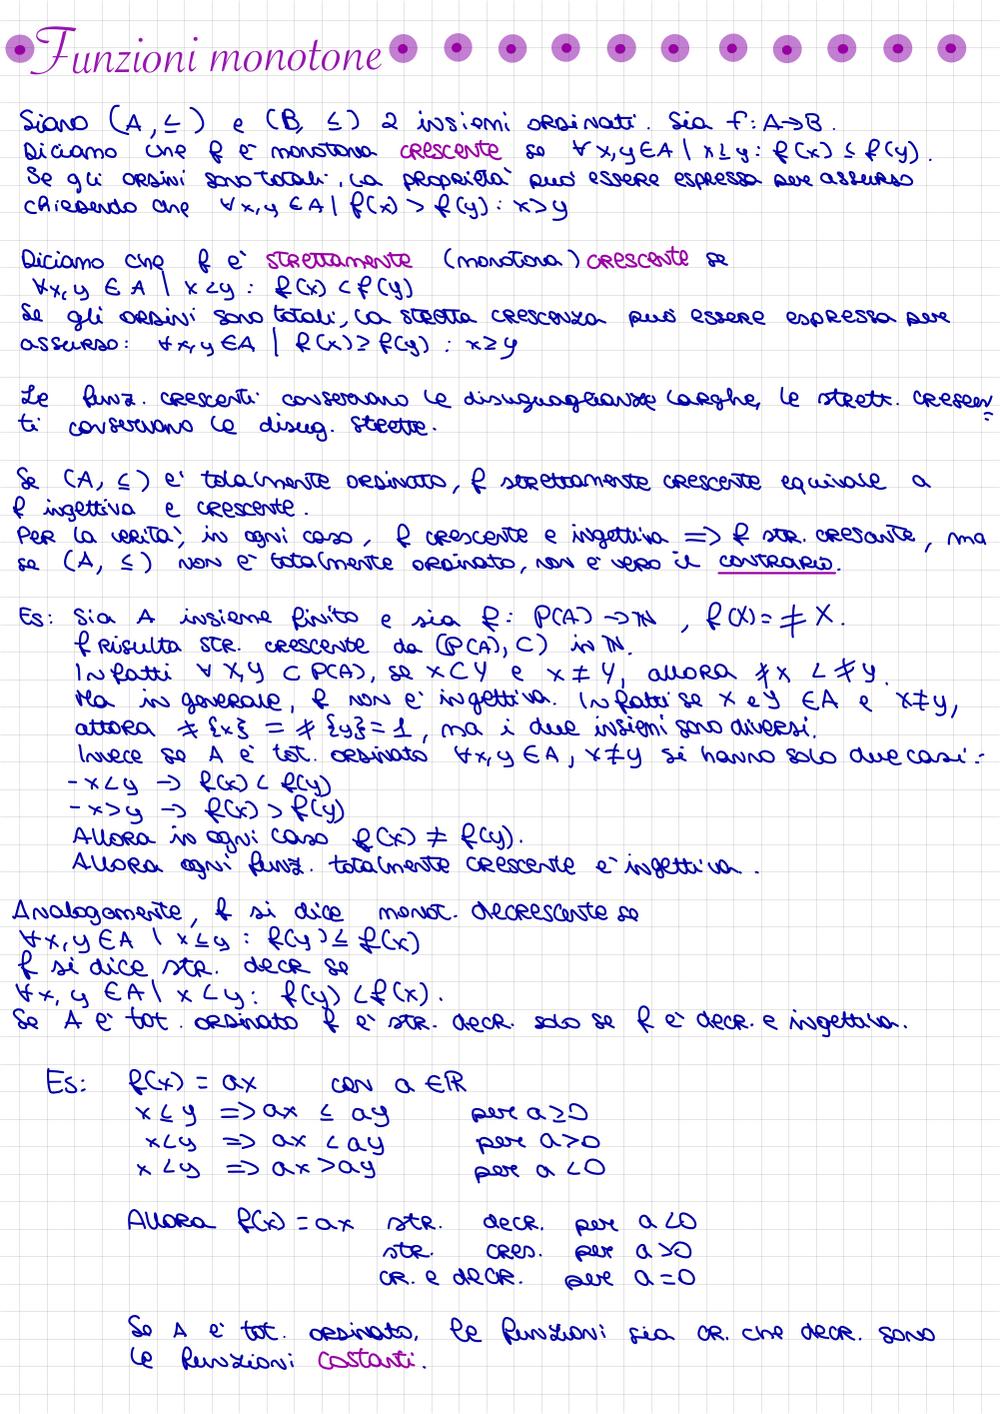 Funzioni monotone
Siano (A, ≤) e (B, ≤) 2 insiemi ordinati. Sia f: A→B.
Diciamo che f è monotona crescente se ∀x,y ∈ A | x≤y : f(x) ≤ f(y).
Se gli ordini sono totali, la proprietà può essere espressa per assurdo
chiedendo che ∀x,y ∈ A | f(x) > f(y) : x>y
Diciamo che f è strettamente (monotona) crescente se
∀x,y ∈ A | x<y : f(x) < f(y)
Se gli ordini sono totali, la stretta crescenza può essere espressa per
assurdo: ∀x,y ∈ A | f(x) ≥ f(y) : x≥y
Le funz. crescenti conservano le disuguaglianze larghe, le strett. crescen
ti conservano le disug. strette.
Se (A, ≤) è totalmente ordinato, f strettamente crescente equivale a
f ingettiva e crescente.
Per la verità, in ogni caso, f crescente e ingettiva => f str. crescente, ma
se (A, ≤) non è totalmente ordinato, non è vero il contrario.
Es: Sia A insieme finito e sia f: P(A) → ℕ, f(X) = # X.
f risulta str. crescente da (P(A), ⊂) in ℕ.
Infatti ∀ X,Y ⊂ P(A), se X ⊂ Y e X ≠ Y, allora #X < #Y.
Ma in generale, f non è ingettiva. Infatti se x e y ∈ A e x≠y,
allora #{x} = #{y} = 1, ma i due insiemi sono diversi.
Invece se A è tot. ordinato ∀x,y ∈ A, x≠y si hanno solo due casi:
- x<y → f(x) < f(y)
- x>y → f(x) > f(y)
Allora in ogni caso f(x) ≠ f(y).
Allora ogni funz. totalmente crescente è ingettiva.
Analogamente, f si dice monot. decrescente se
∀x,y ∈ A | x≤y : f(y) ≤ f(x)
f si dice str. decr se
∀x,y ∈ A | x<y : f(y) < f(x).
Se A è tot. ordinato f è str. decr. solo se f è decr. e ingettiva.
Es: f(x) = ax con a ∈ ℝ
x ≤ y => ax ≤ ay per a≥0
x<y => ax < ay per a>0
x<y => ax > ay per a<0
Allora f(x) = ax str. decr. per a<0
str. cres. per a>0
cr. e decr. per a=0
Se A è tot. ordinato, le funzioni sia cr. che decr. sono
le funzioni costanti.